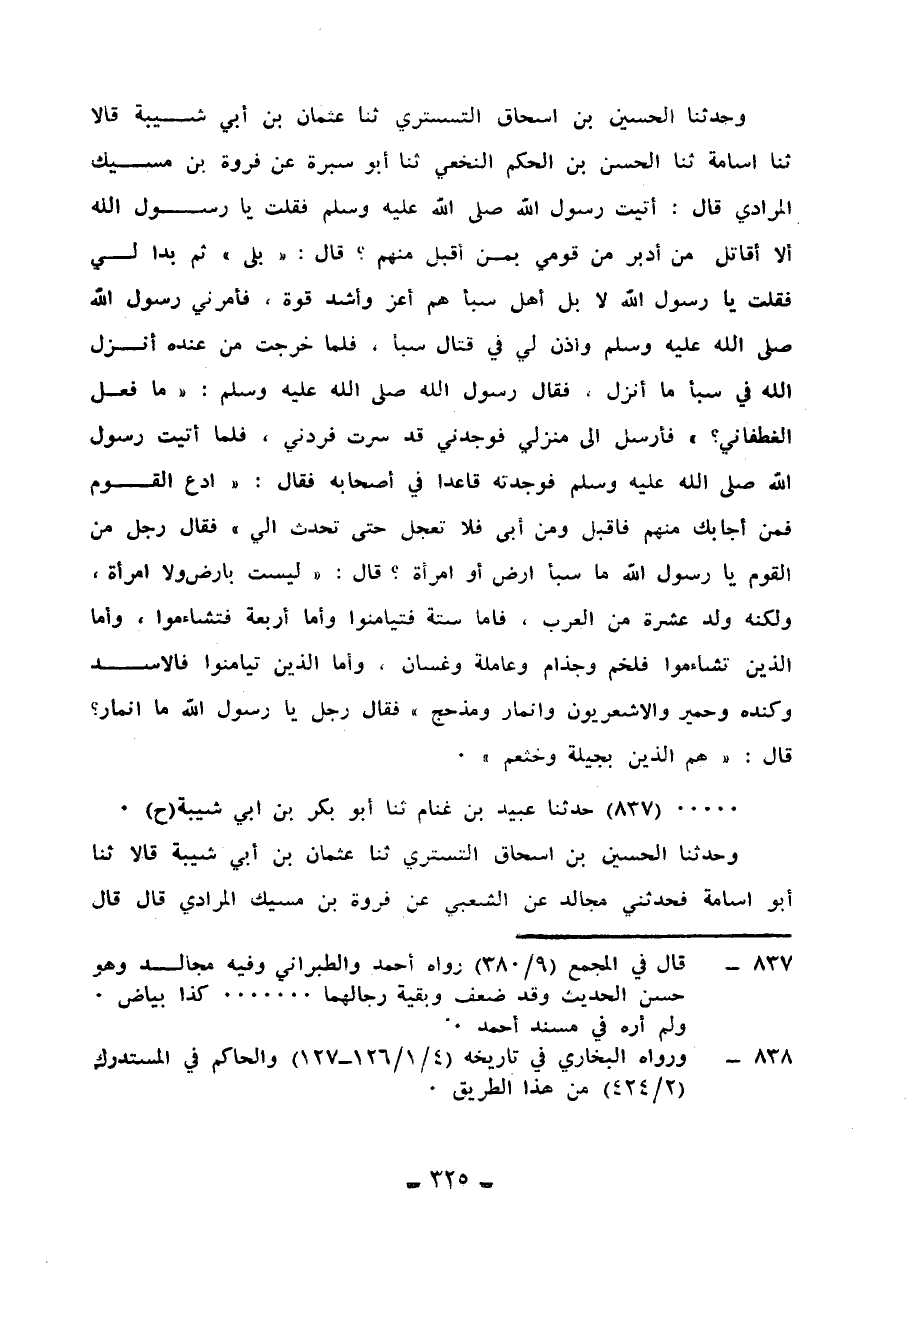 وحدثنا الحسين بن اسحاق التستري ثنا عثمان بن أبي شيبة قالا
ثنا اسامة ثنا الحسن بن الحكم النخعي ثنا أبو سبرة عن فروة بن مسيك
المرادي قال : أتيت رسول الله صلى الله عليه وسلم فقلت يا رسول الله
ألا أقاتل من أدبر من قومي بمن أقبل منهم ؟ قال : « بلى » ثم بدا لي
فقلت يا رسول الله لا بل أهل سبأ هم أعز وأشد قوة ، فأمرني رسول الله
صلى الله عليه وسلم واذن لي في قتال سبأ ، فلما خرجت من عنده أنزل
الله في سبأ ما أنزل ، فقال رسول الله صلى الله عليه وسلم : « ما فعل
الغطفاني؟ » فأرسل الى منزلي فوجدني قد سرت فردني ، فلما أتيت رسول
الله صلى الله عليه وسلم فوجدته قاعدا في أصحابه فقال : « ادع القوم
فمن أجابك منهم فاقبل ومن أبى فلا تعجل حتى تحدث الي » فقال رجل من
القوم يا رسول الله ما سبأ ارض أو امرأة ؟ قال : « ليست بارض ولا امرأة ،
ولكنه ولد عشرة من العرب ، فاما ستة فتيامنوا وأما أربعة فتشاءموا ، وأما
الذين تشاءموا فلخم وجذام وعاملة وغسان ، وأما الذين تيامنوا فالاسد
وكنده وحمير والاشعريون وانمار ومذحج » فقال رجل يا رسول الله ما انمار؟
قال : « هم الذين بجيلة وخثعم » ٠
٠٠٠٠٠ (٨٣٧) حدثنا عبيد بن غنام ثنا أبو بكر بن ابي شيبة(ح) ٠
وحدثنا الحسين بن اسحاق التستري ثنا عثمان بن أبي شيبة قالا ثنا
أبو اسامة فحدثني مجالد عن الشعبي عن فروة بن مسيك المرادي قال قال
٨٣٧ – قال في المجمع (٣٨٠/٩) رواه أحمد والطبراني وفيه مجالد وهو
حسن الحديث وقد ضعف وبقية رجالهما ٠٠٠٠٠٠٠ كذا بياض ٠
ولم أره في مسند أحمد ٠
٨٣٨ – ورواه البخاري في تاريخه (١٢٦/١/٤–١٢٧) والحاكم في المستدرك
(٤٢٤/٢) من هذا الطريق ٠
– ٣٢٥ –